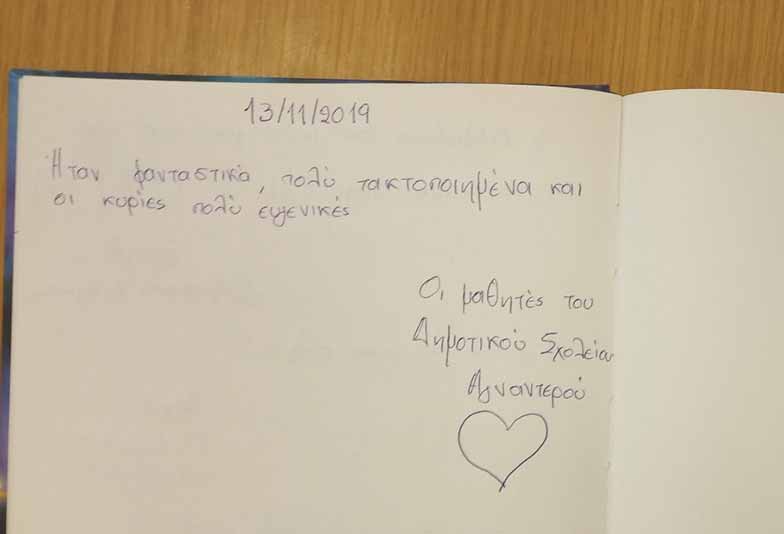 13/11/2019
Ήταν φανταστικά, πολύ τακτοποιημένα και
οι κυρίες πολύ ευγενικές
Οι μαθητές του
Δημοτικού Σχολείου
Αγναντερού